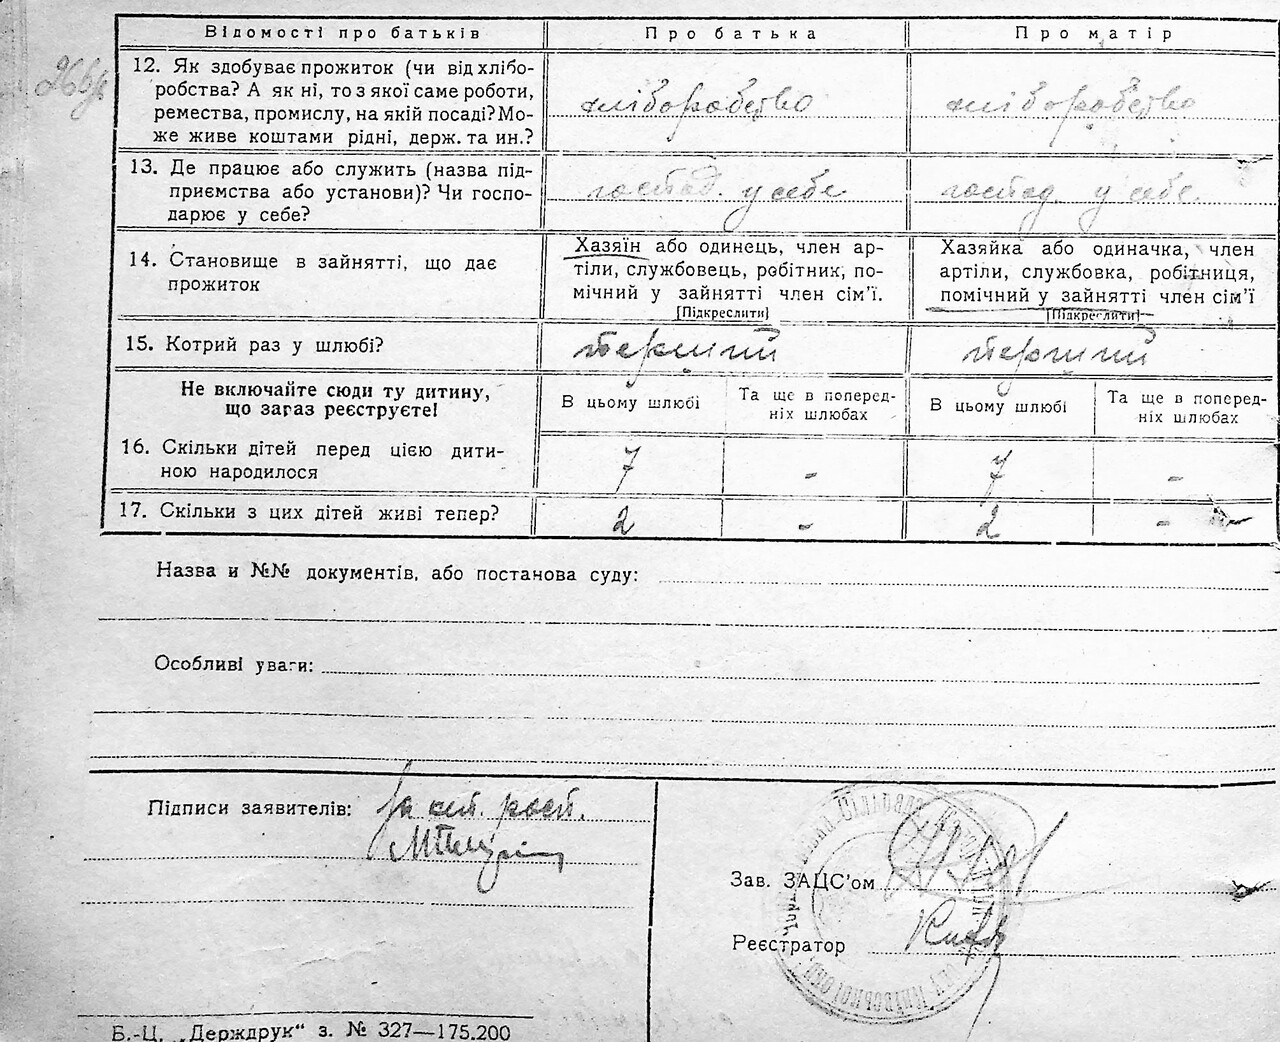 Відомості про батьків Про батька Про матір
12. Як здобуває прожиток (чи від хлібо-
робства? А як ні, то з якої саме роботи,
ремества, промислу, на якій посаді? Мо-
же живе коштами рідні, держ. та ин.?
хліборобство хліборобство
13. Де працює або служить (назва під-
приємства або установи)? Чи госпо-
дарює у себе?
господ. у себе господ. у себе
14. Становище в зайнятті, що дає
прожиток
Хазяїн або одинець, член ар-
тіли, службовець, робітник, по-
мічний у зайнятті член сім'ї.
[Підкреслити]
Хазяйка або одиначка, член
артіли, службовка, робітниця,
помічний у зайнятті член сім'ї
[Підкреслити]
15. Котрий раз у шлюбі? перший перший
Не включайте сюди ту дитину,
що зараз реєструєте!
В цьому шлюбі
Та ще в поперед-
ніх шлюбах
В цьому шлюбі
Та ще в поперед-
ніх шлюбах
16. Скільки дітей перед цією дити-
ною народилося
7 - 7 -
17. Скільки з цих дітей живі тепер? 2 - 2 -
Назва и №№ документів, або постанова суду:
Особливі уваги:
Підписи заявителів:
Зав. ЗАЦС'ом
Реєстратор
Б.-Ц. „Держдрук" з. № 327—175.200